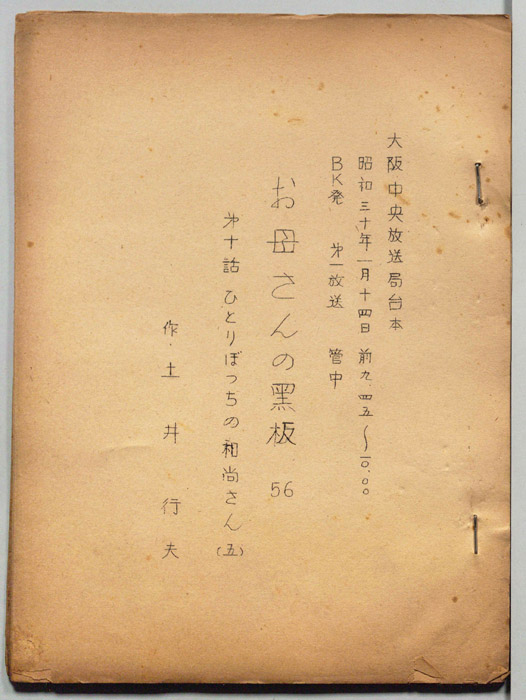 大阪中央放送局台本
昭和三十年一月十四日 前九.四五〜一〇.〇〇
BK発 第一放送 管中
お母さんの黒板 56
第十話 ひとりぼっちの和尚さん(五)
作.土井行夫